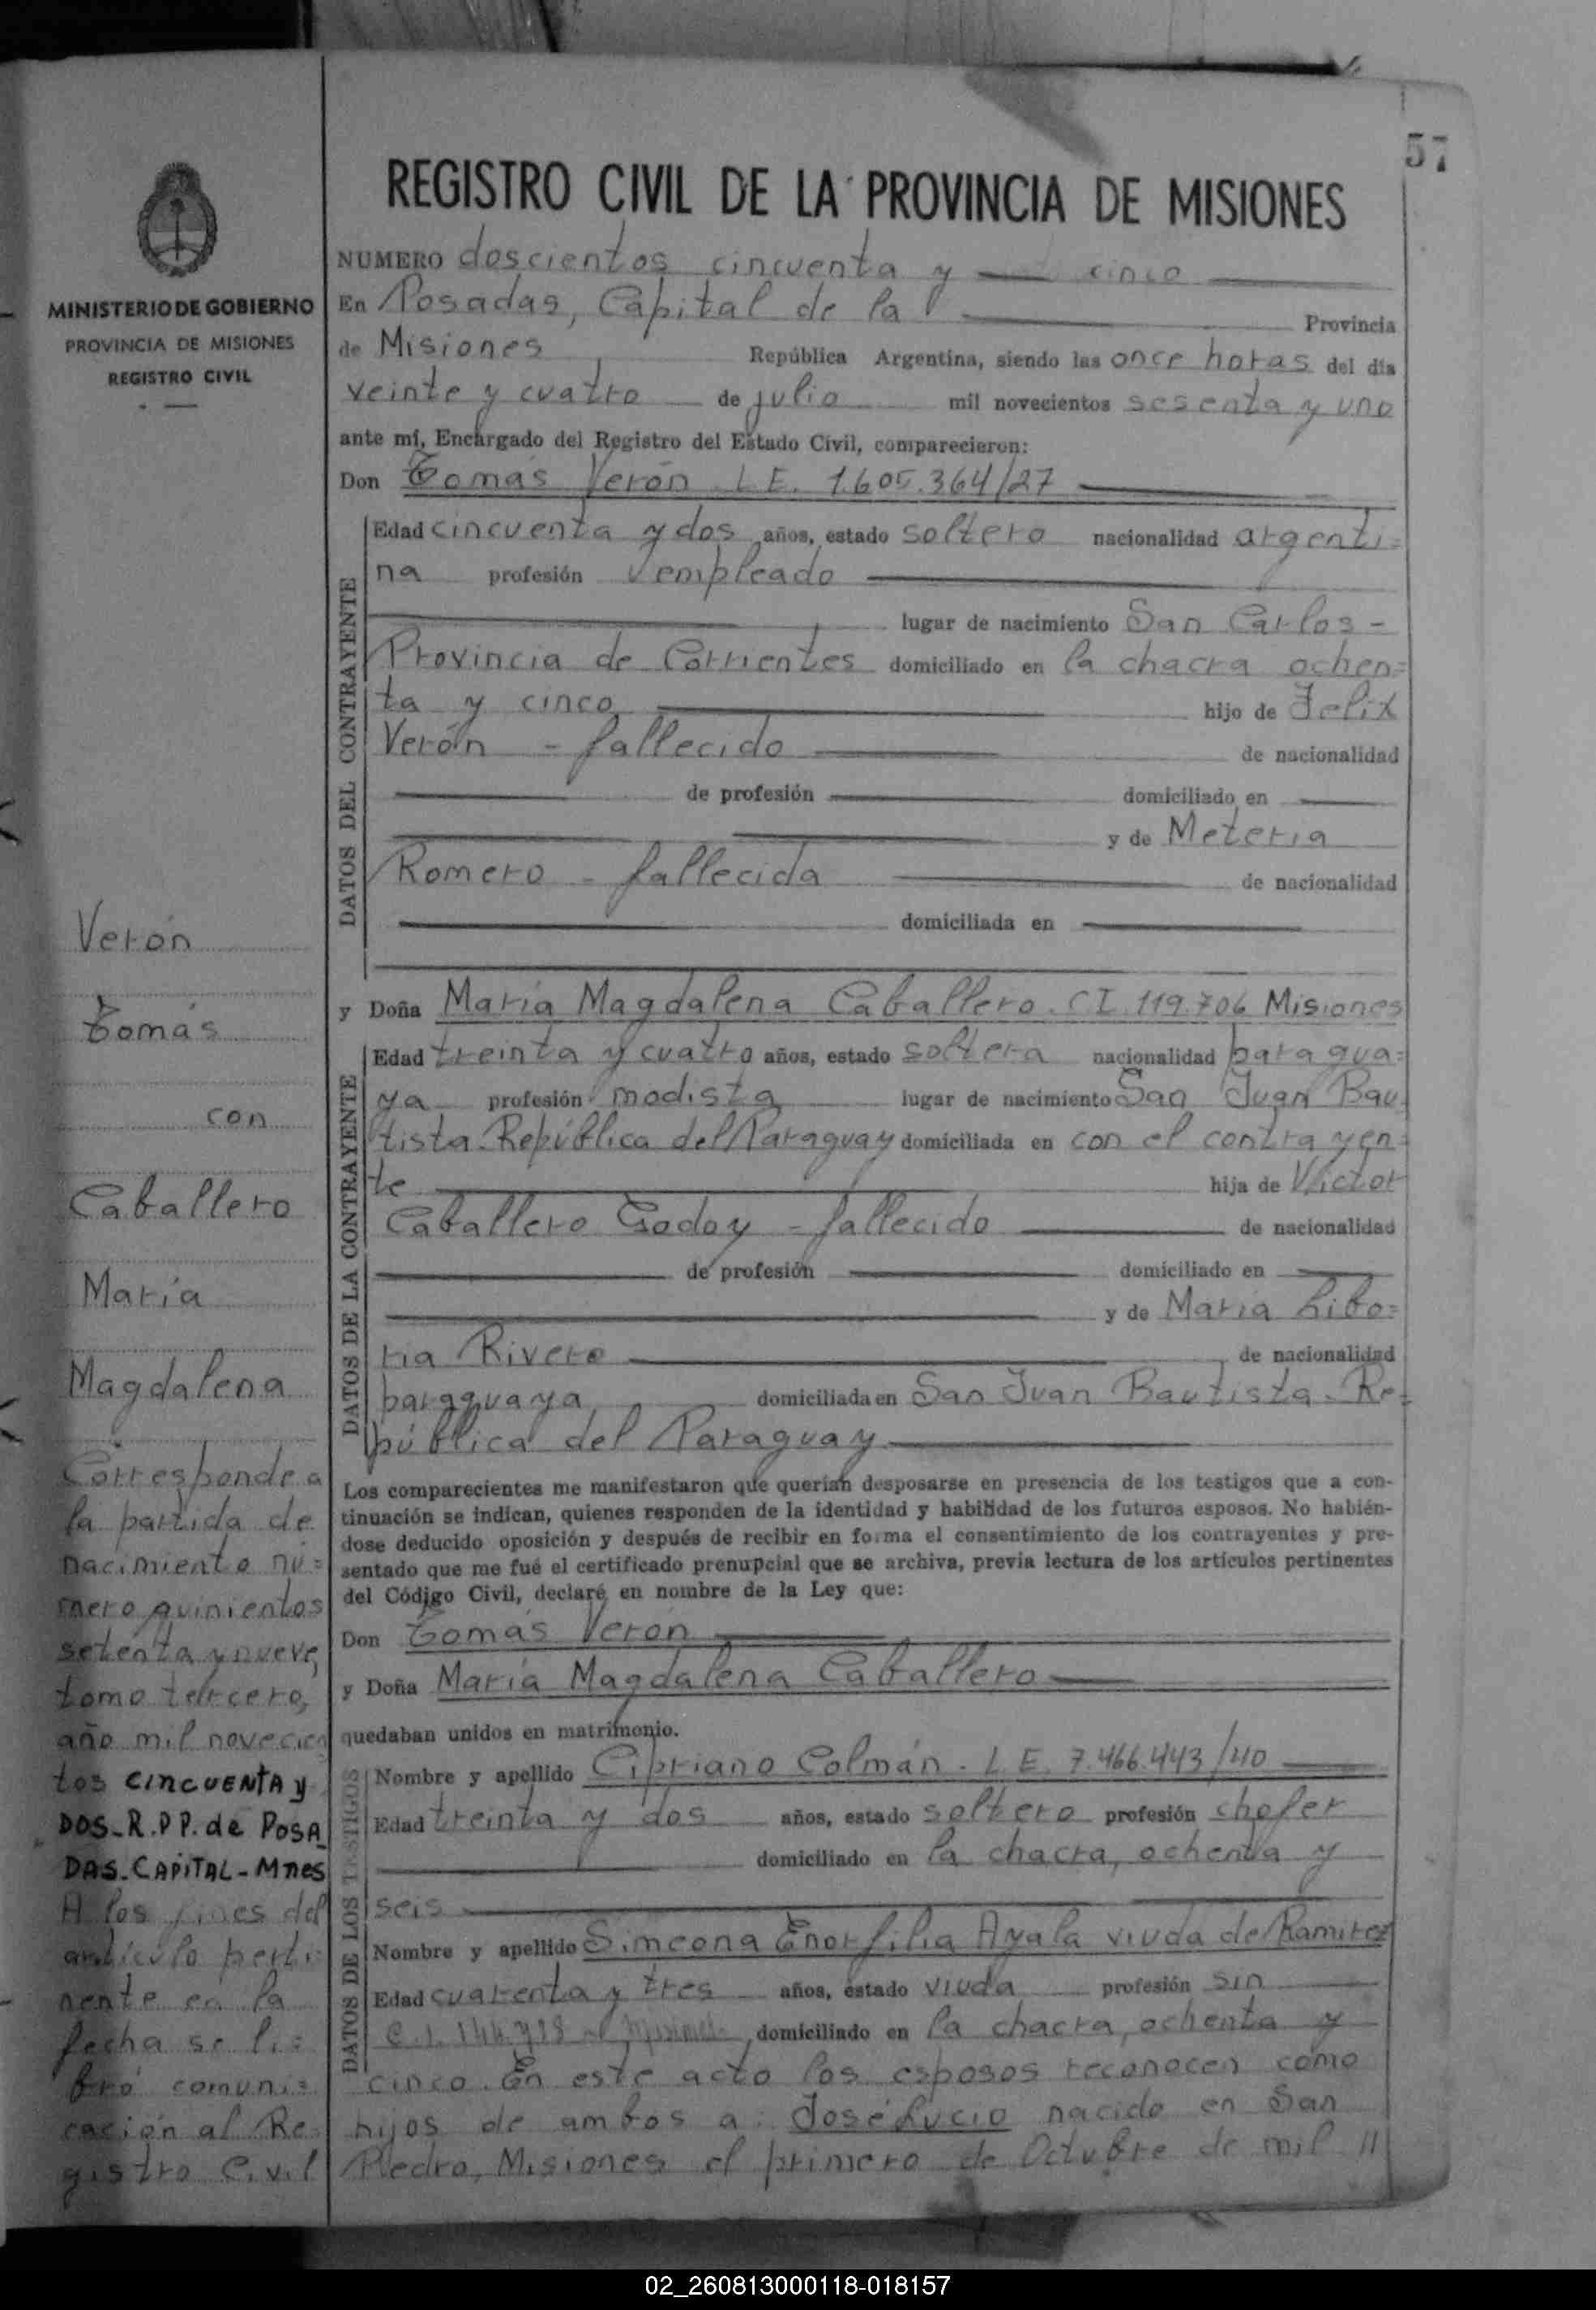 57
MINISTERIO DE GOBIERNO
PROVINCIA DE MISIONES
REGISTRO CIVIL
Verón
Tomás
con
Caballero
María
Magdalena
Corresponde a
la partida de
nacimiento nú=
mero quinientos
setenta y nueve,
tomo tercero,
año mil novecien
tos CINCUENTA y
DOS_R.P P. de POSA_
DAS_CAPITAL_Mnes
A los fines del
artículo perti=
nente en la
fecha se li=
bró comuni=
cación al Re
gistro Civil
REGISTRO CIVIL DE LA PROVINCIA DE MISIONES
NUMERO doscientos cincuenta y cinco
En Posadas, Capital de la Provincia
de Misiones República Argentina, siendo las once horas del día
veinte y cuatro de julio mil novecientos sesenta y uno
ante mí, Encargado del Registro del Estado Civil, comparecieron:
Don Tomás Verón L E. 1.605.364/27
DATOS DEL CONTRAYENTE
Edad cincuenta y dos años, estado soltero nacionalidad argenti=
na profesión empleado
lugar de nacimiento San Carlos -
Provincia de Corrientes domiciliado en la chacra ochen=
ta y cinco hijo de Felix
Verón - fallecido de nacionalidad
de profesión domiciliado en
y de Meteria
Romero - fallecida de nacionalidad
domiciliada en
y Doña María Magdalena Caballero. C I. 119.706 Misiones
DATOS DE LA CONTRAYENTE
Edad treinta y cuatro años, estado soltera nacionalidad paragua=
ya profesión modista lugar de nacimiento San Juan Bau
tista. República del Paraguay domiciliada en con el contrayen=
te hija de Victor
Caballero Godoy - fallecido de nacionalidad
de profesión domiciliado en
y de María Libo=
ria Rivero de nacionalidad
paraguaya domiciliada en San Juan Bautista. Re=
pública del Paraguay
Los comparecientes me manifestaron que querían desposarse en presencia de los testigos que a con-
tinuación se indican, quienes responden de la identidad y habilidad de los futuros esposos. No habién-
dose deducido oposición y después de recibir en forma el consentimiento de los contrayentes y pre-
sentado que me fué el certificado prenupcial que se archiva, previa lectura de los artículos pertinentes
del Código Civil, declaré en nombre de la Ley que:
Don Tomás Verón
y Doña María Magdalena Caballero
quedaban unidos en matrimonio.
DATOS DE LOS TESTIGOS
Nombre y apellido Cipriano Colmán. L E. 7.466.443/40
Edad treinta y dos años, estado soltero profesión chofer
domiciliado en la chacra, ochenta y
seis
Nombre y apellido Simeona Enorfilia Ayala viuda de Ramirez
Edad cuarenta y tres años, estado viuda profesión sin
C.I. domiciliado en la chacra, ochenta y
cinco. En este acto los esposos reconocen como
hijos de ambos a: José Lucio nacido en San
Pedro, Misiones el primero de Octubre de mil //
02_260813000118-018157